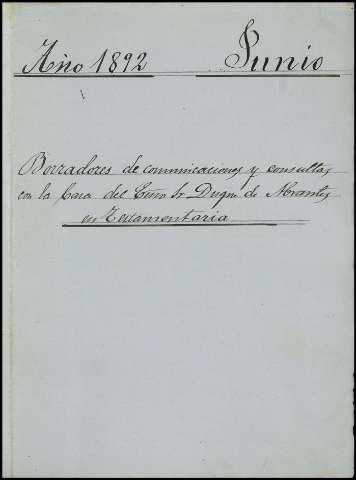 Año 1892 Junio
Borradores de comunicaciones y consultas
con la Casa del Exmo Sr Duque de Abrantes
en Testamentaria